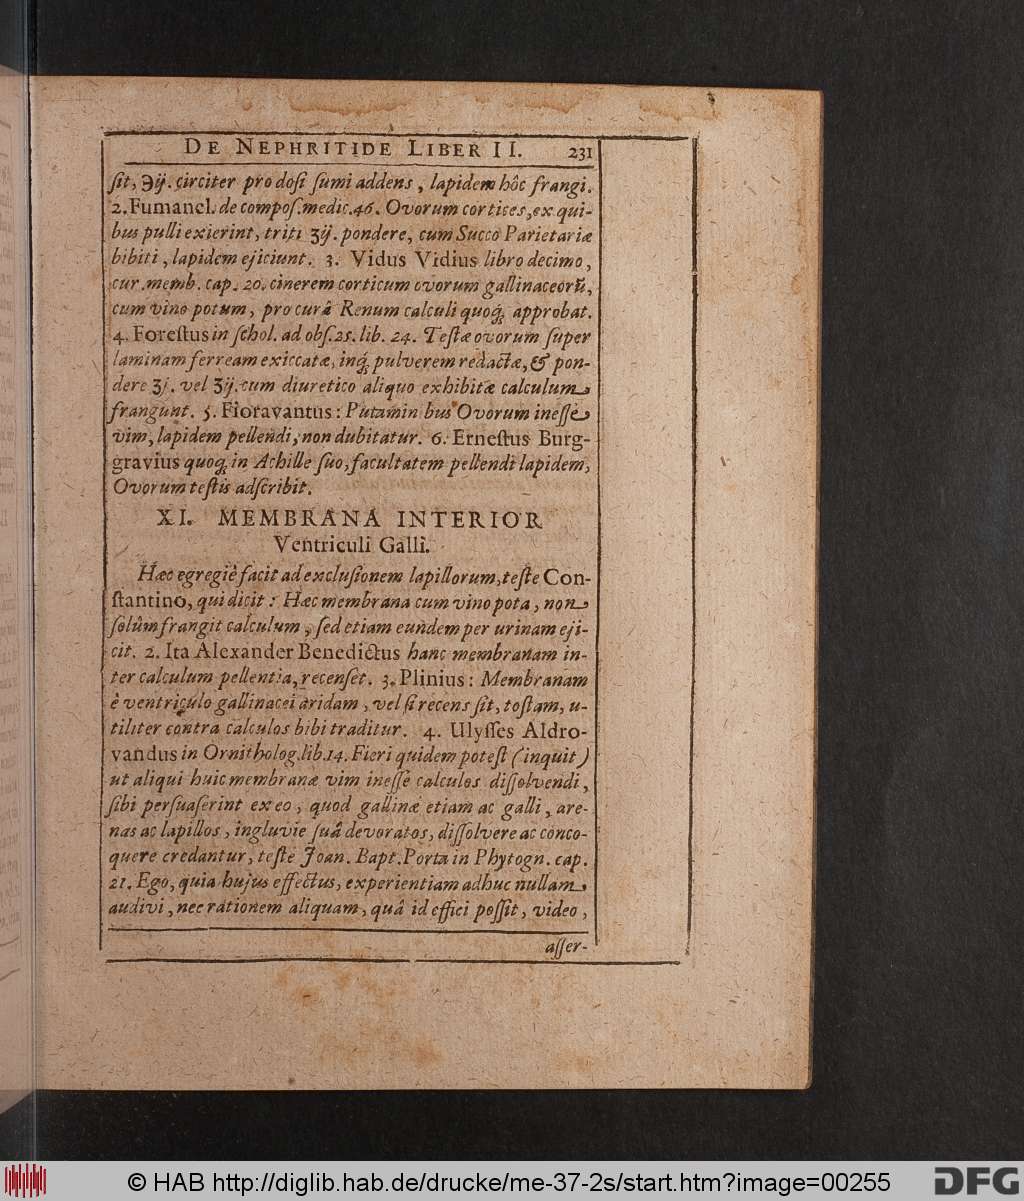 DE NEPHRITIDE LIBER II. 231
ſit, ℈ij. circiter pro doſi ſumi addens, lapidem hôc frangi.
2. Fumanel. de compoſ. medic. 46. Ovorum cortices, ex qui-
bus pulli exierint, triti ʒij. pondere, cum Succo Parietariæ
bibiti, lapidem ejiciunt. 3. Vidus Vidius libro decimo,
cur. memb. cap. 20. cinerem corticum ovorum gallinaceorũ,
cum vino potum, pro curâ Renum calculi quoq; approbat.
4. Foreſtus in ſchol. ad obſ. 25. lib. 24. Teſtæ ovorum ſuper
laminam ferream exiccatæ, inq; pulverem redactæ, & pon-
dere ʒj. vel ʒij. cum diuretico aliquo exhibitæ calculum
frangunt. 5. Fioravantus: Putaminibus Ovorum ineſſe
vim, lapidem pellendi, non dubitatur. 6. Erneſtus Burg-
gravius quoq; in Achille ſuo, facultatem pellendi lapidem,
Ovorum teſtis adſcribit.
XI. MEMBRANA INTERIOR
Ventriculi Galli.
Hæc egregiè facit ad excluſionem lapillorum, teſte Con-
ſtantino, qui dicit: Hæc membrana cum vino pota, non
ſolùm frangit calculum, ſed etiam eundem per urinam eji-
cit. 2. Ita Alexander Benedictus hanc membranam in-
ter calculum pellentia, recenſet. 3. Plinius: Membranam
è ventriculo gallinacei aridam, vel ſi recens ſit, toſtam, u-
tiliter contra calculos bibi traditur. 4. Ulyſſes Aldro-
vandus in Ornitholog. lib. 14. Fieri quidem poteſt (inquit)
ut aliqui huic membranæ vim ineſſe calculos diſſolvendi,
ſibi perſuaſerint ex eo, quod gallinæ etiam ac galli, are-
nas ac lapillos, ingluvie ſuâ devoratos, diſſolvere ac conco-
quere credantur, teſte Joan. Bapt. Porta in Phytogn. cap.
21. Ego, quia hujus effectus, experientiam adhuc nullam
audivi, nec rationem aliquam, quâ id effici poſſit, video,
aſſer-
© HAB http://diglib.hab.de/drucke/me-37-2s/start.htm?image=00255
DFG